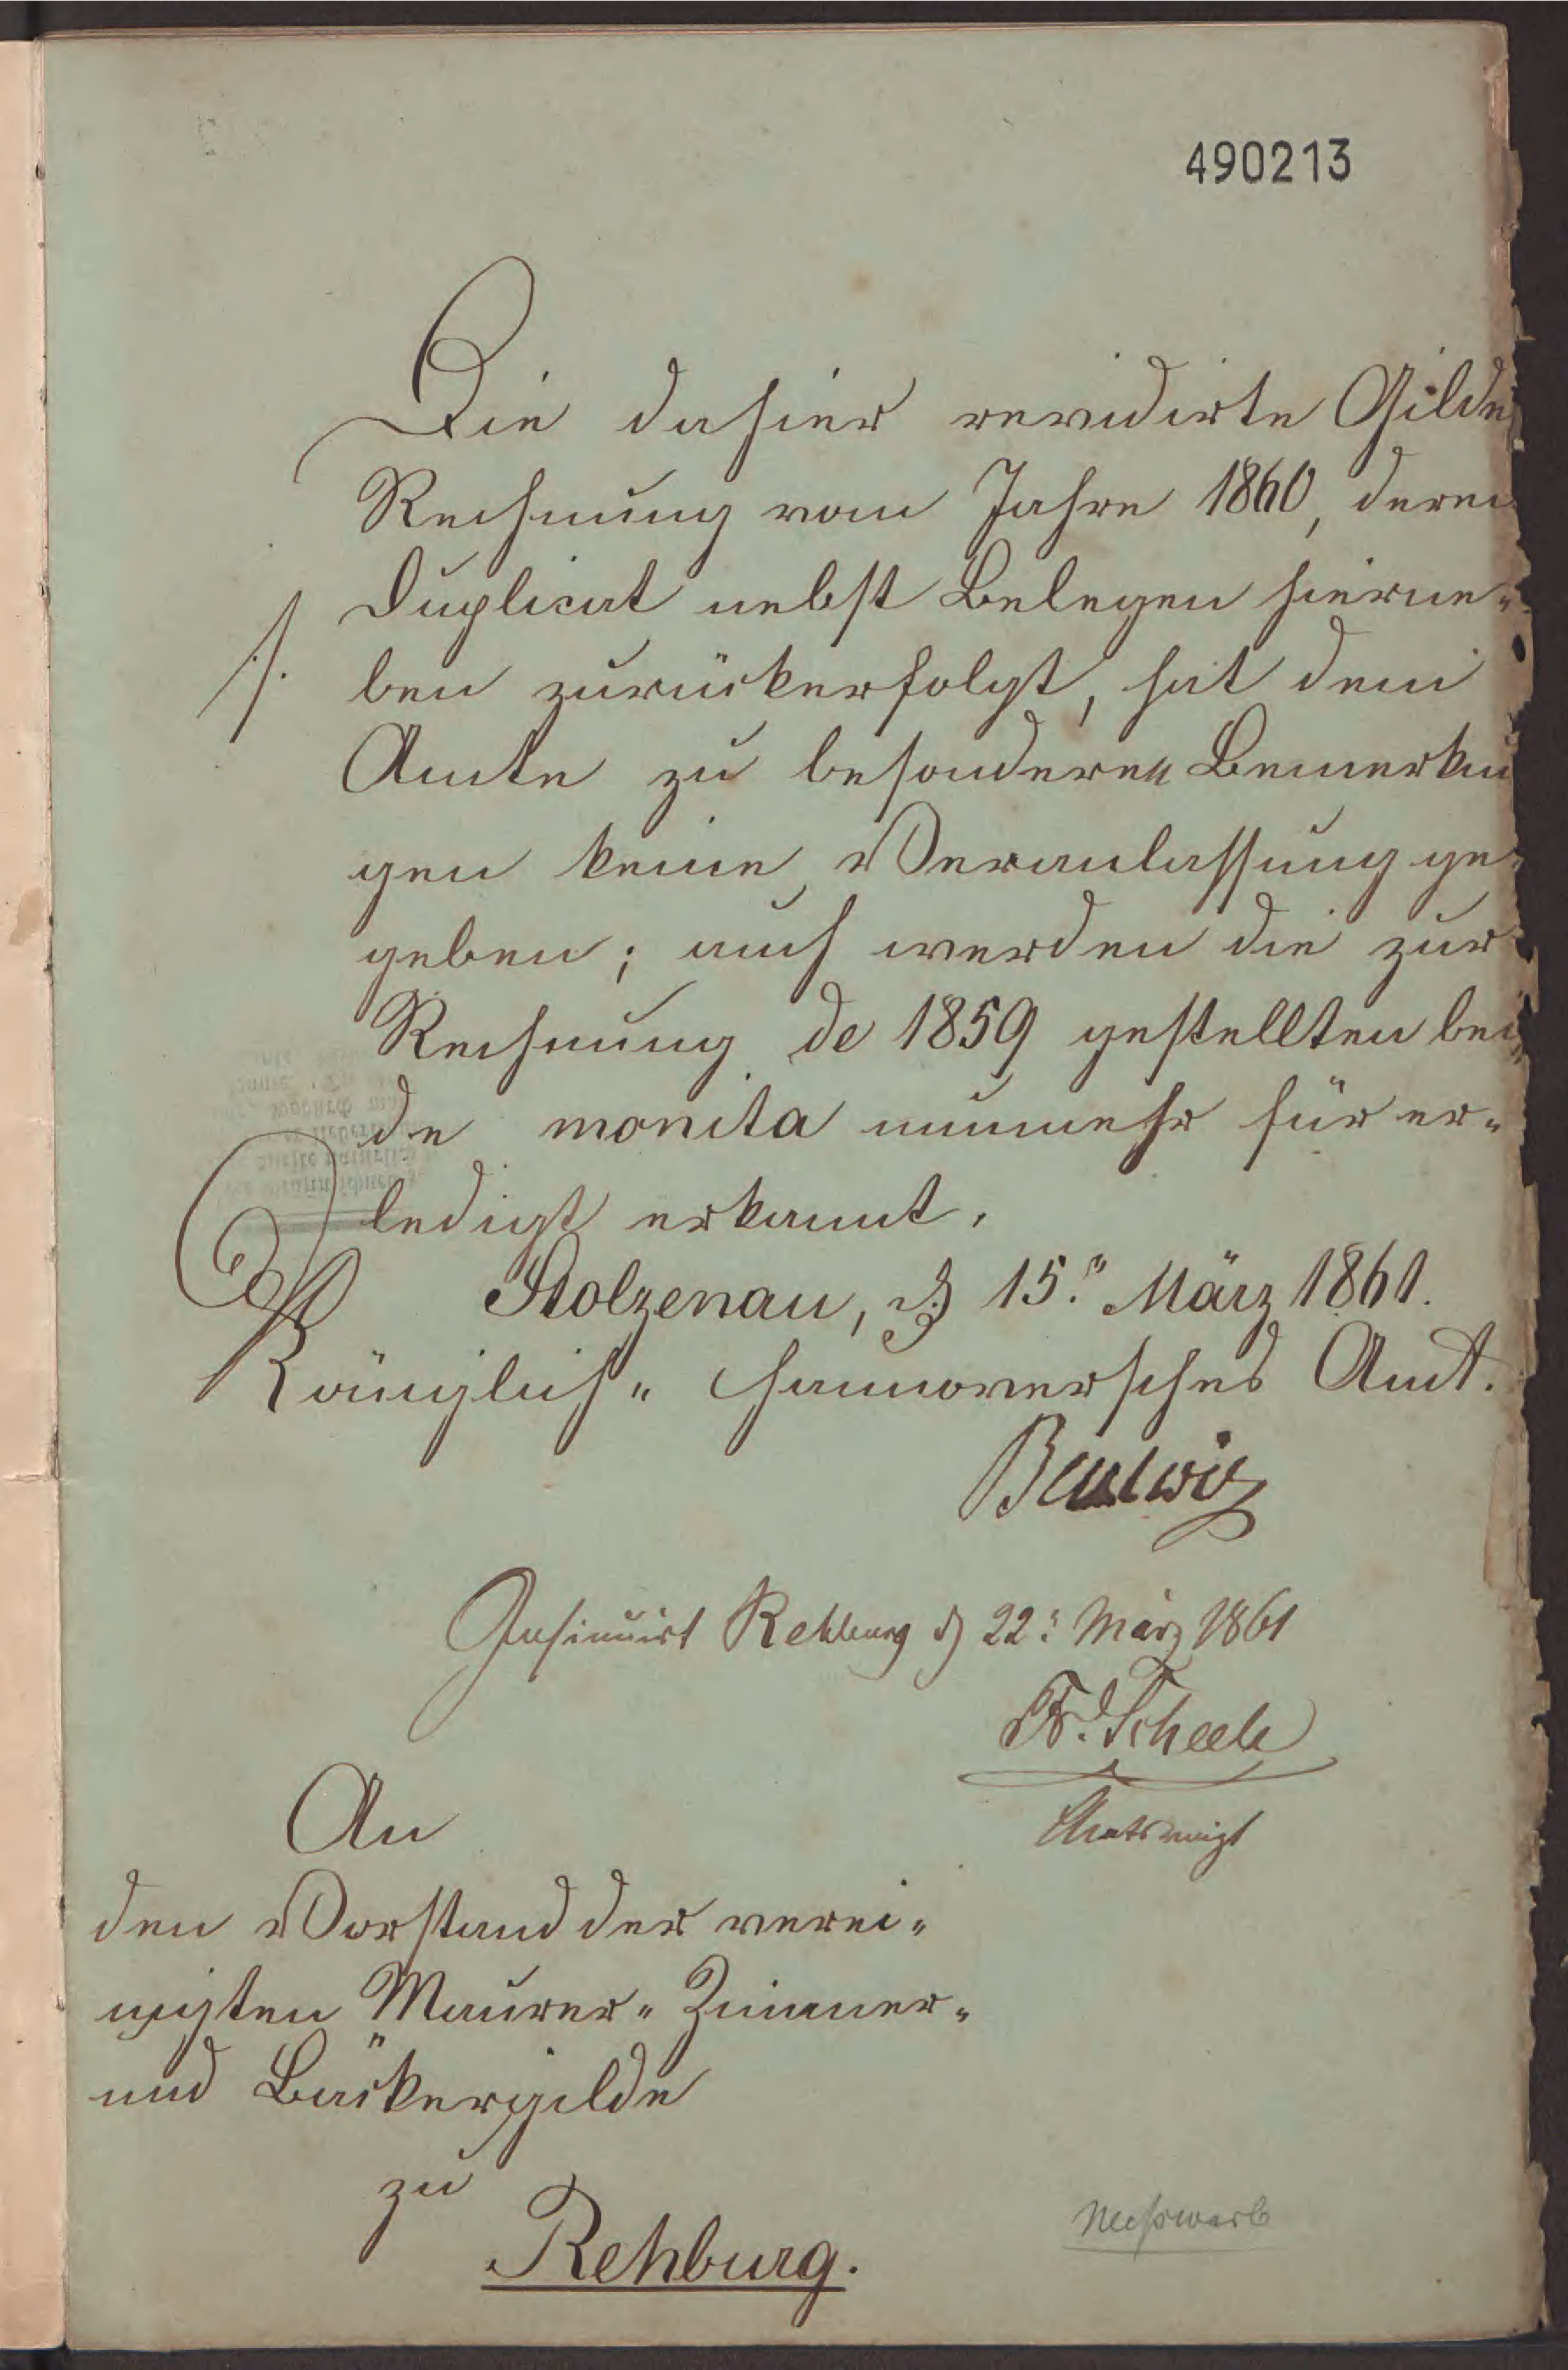 490213
Die dahier revidirte Gilde
Rechnung vom Jahre 1860, deren
Duplicat nebst Belegen hierne-
ben zurückerfolgt, hat dem
Amte zu besonderen Bemerkun
gen keine Veranlassung ge-
geben; auch werden die zur
Rechnung de 1859 gestellten bei-
de monita nunmehr für er-
ledigt erkannt.
Stolzenau, d. 15. März 1861.
Königlich- Hannoversches Amt.
Insinuirt Rehburg d 22: März 1861
Fr. Scheele
Amtsvoigt
An
den Vorstand der verei-
nigten Maurer- Zimmer-
und Bäckergilde
zu
Rehburg.